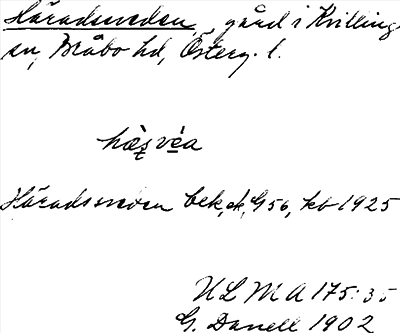 Häradssveden, gård i Kvilling-
en, Bråbo hd, Österg. l.
hæ̀ṣvéa
Häradssveden bek, ek, G 56, kb 1925
ULMA 175:35
G. Danell 1902